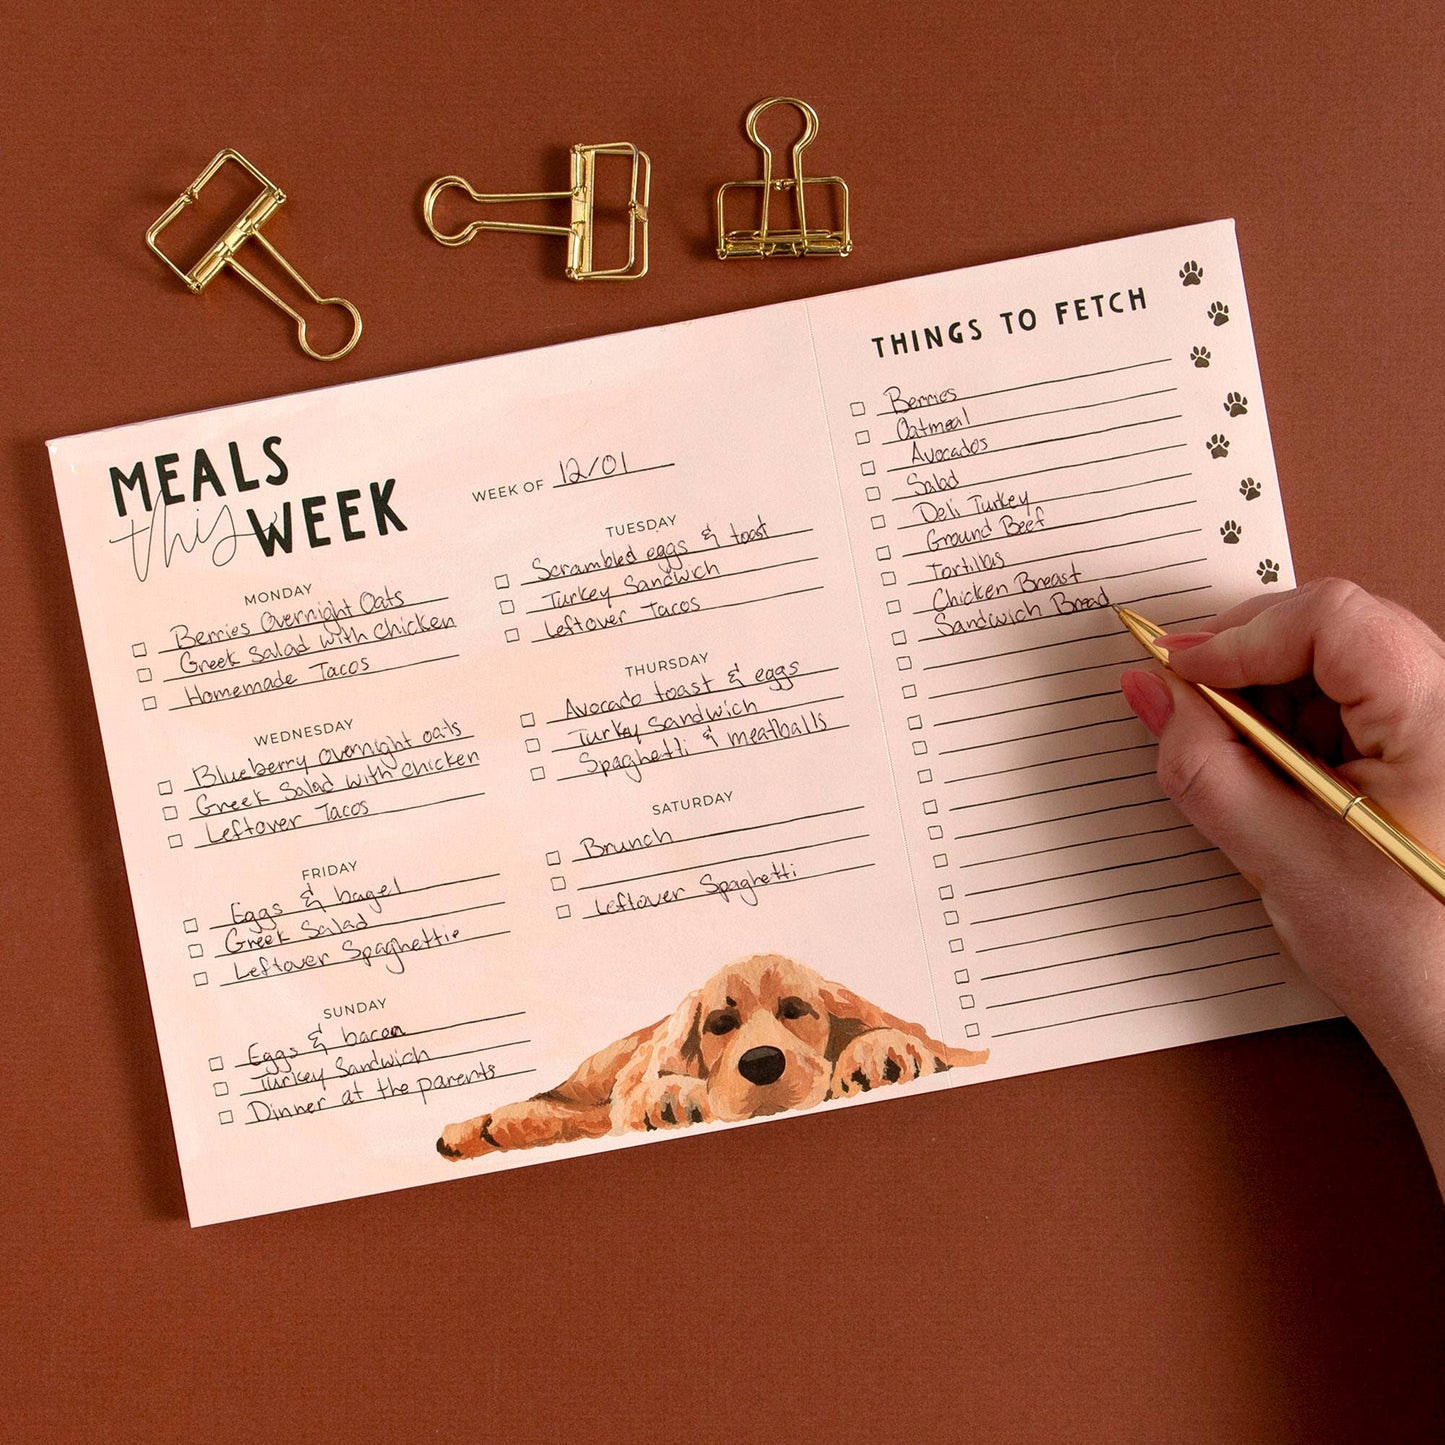 MEALS
this WEEK
WEEK OF 12/01
MONDAY
Berries Overnight Oats
Greek Salad with Chicken
Homemade Tacos
TUESDAY
Scrambled eggs & toast
Turkey Sandwich
Leftover Tacos
WEDNESDAY
Blueberry overnight oats
Greek Salad with Chicken
Leftover Tacos
THURSDAY
Avocado toast & eggs
Turkey Sandwich
Spaghetti & meatballs
FRIDAY
Eggs & bagel
Greek Salad
Leftover Spaghettie
SATURDAY
Brunch
Leftover Spaghetti
SUNDAY
Eggs & bacon
Turkey Sandwich
Dinner at the parents
THINGS TO FETCH
Berries
Oatmeal
Avocados
Salad
Deli Turkey
Ground Beef
Tortillas
Chicken Breast
Sandwich Bread